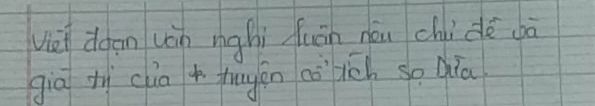 Viết đoạn văn nghị luận nêu chủ đề và
giá trị của truyện cổ tích sọ Dừa